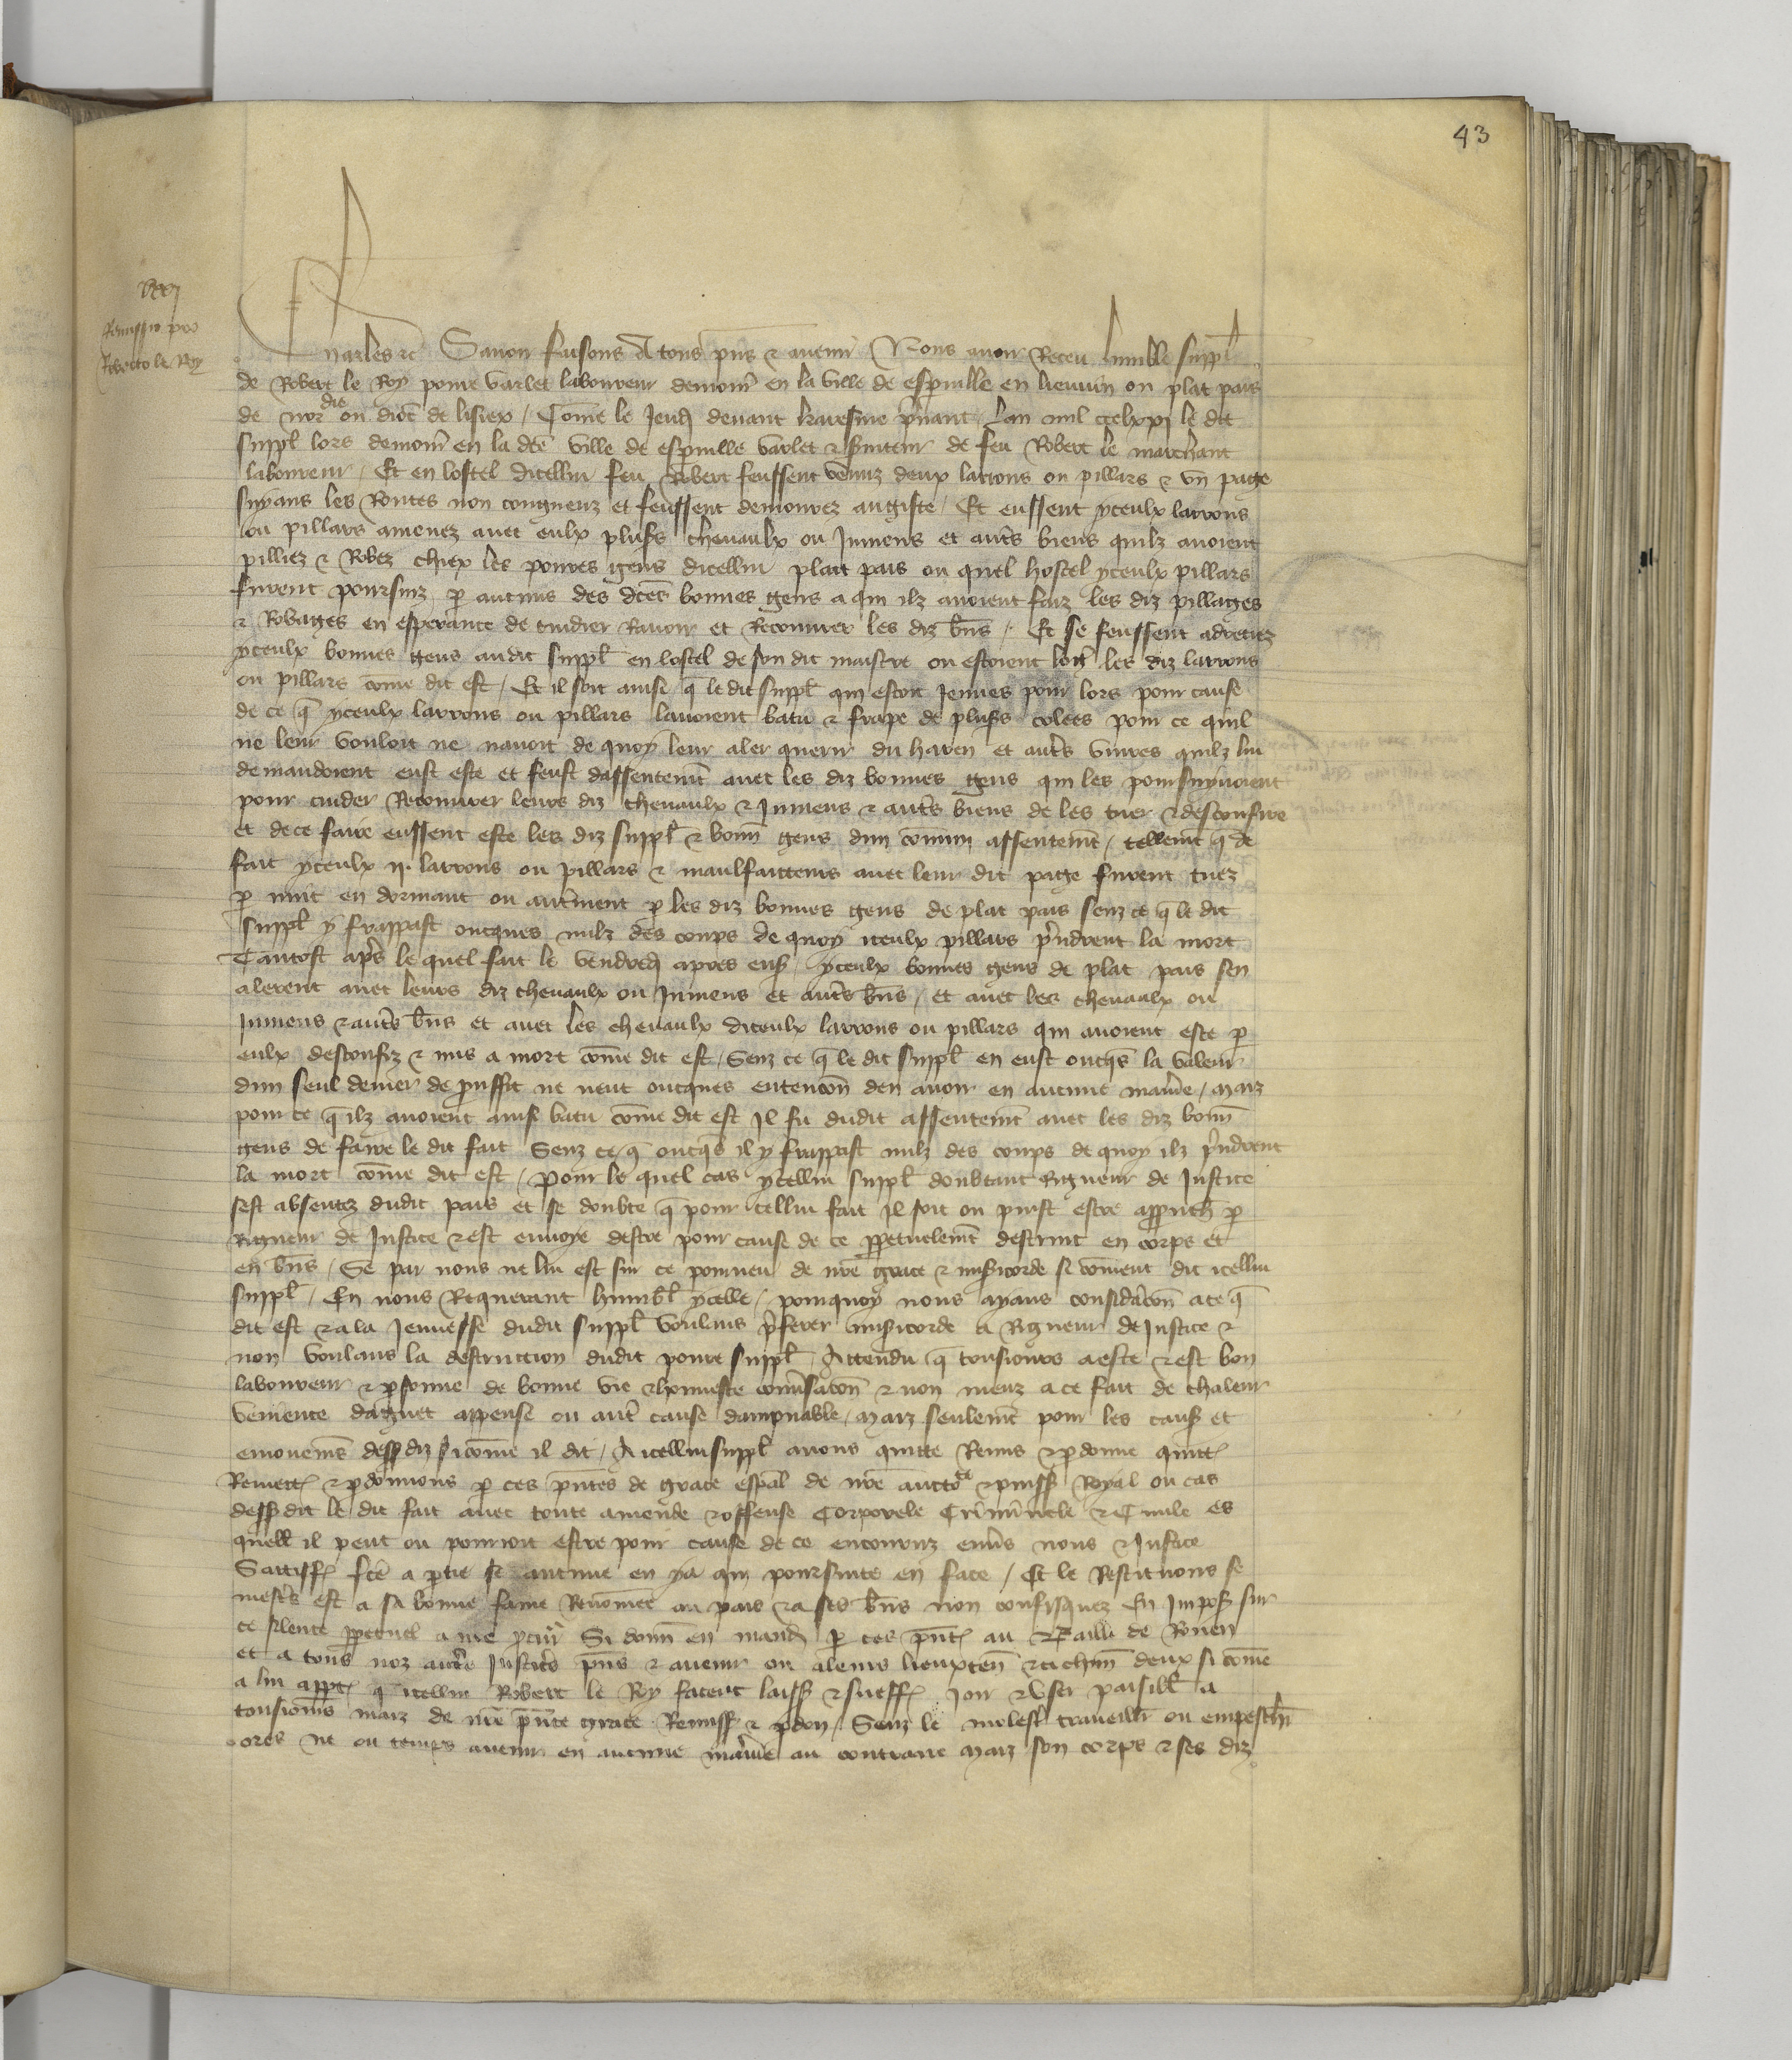 43
Remissio pro
Roberto le Roy
Charles etc Savoir faisons A tous pñs & avenir Nous avoir Receu humble suppl
de Robert le Roy povre varlet laboureur demour en la ville de espreville en lieuvin ou plat pais
de nordie ou dioc de lisiex / Cõme le Jeudi devant karesme prnant Lan mil ccclxxxj le dit
suppl lors demour en la dce ville de espreville varlet & serviteur de feu Robert le marchant
laboureur / Et en lostel dicellui feu Robert feussent venuz deux larrons ou pillars & vn page
suyans les Routes non congneuz et feussent demourez au giste / Et eussent yceulx larrons
ou pillars amenez avec eulx plusrs chevaulx ou Jumens et autrs biens quilz avoient
pilliez & Robez chiex les povres gens dicellui plait pais ou quel hostel yceulx pillars
furent poursuiz p aucuns des dces bonnes gens a qui ilz avoient faiz les diz pillages
& Robages en esperance de cuidier Ravoir et Recouvrer les diz bñs / Et se feussent adreciez
yceulx bonnes gens audit suppl en lostel de son dit maistre ou estoient logi les diz larrons
ou pillars cõme dit est / Et il soit ainsi q le dit suppl qui estoit Jeunes pour lors pour cause
de ce q yceulx larrons ou pillars lavoient batu & frape de plusrs colees pour ce quil
ne leur vouloit ne navoit de quoy leur aler querir du haren et autrs vivres quilz lui
demandoient eust este et feust dassentemt avec les diz bonnes gens qui les poursuyvoient
pour cuider Recouvrer leurs diz chevaulx & Jumens & autrs biens de les tuer & desconfire
et de ce faire eussent este les diz suppl & bonn gens dun cõmun assentemt / tellemt q de
fait yceulx ij larrons ou pillars & maulfaitteurs avec leur dit page furent tuez
p nuit en dormant ou autrement p les diz bonnes gens de plat pais senz ce q le dit
suppl y frappast oncques nulz des coups de quoy iceulx pillars prindrent la mort
Tantost aprs le quel fait le vendredi apres ens yceulx bonnes gens de plat pais sen
alerent avec leurs diz chevaulx ou Jumens et autrs bñs / et avec les chevaulx ou
Jumens & autrs bñs et avec les chevaulx diceulx larrons ou pillars qui avoient este p
eulx desconfiz & mis a mort cõme dit est / Senz ce q le dit suppl en eust oncqs la valeur
dun seul denier de prouffit ne neut oncques entencõn den avoir en aucune manre / maiz
pour ce q ilz avoient ainsi batu cõme dit est Il fu dudit assentemt avec les diz bonn
gens de faire le dit fait Senz ce q oncqs il y frappast nulz des coups de quoy ilz prindrent
la mort cõme dit est / Pour le quel cas ycellui suppl doubtant Rigueur de Justice
sest absentez dudit pais et se doubte q pour cellui fait Il soit ou puist estre approuch p
Rigueur de Justice & est en voye destre pour cause de ce ppetuelemt destruit en corps et
en bñs / Se par nous ne lui est sur ce pourveu de nre grace & misricorde si cõment dit icellui
suppl / En nous Requerant humbl ycelle / pourquoy nous ayans consideracõn a ce q
dit est & a la Jeunesse dudit suppl voulans prferer misricorde a Rigueur de Justice &
non voulans la destruction dudit povre suppl / Attendu q tousiours a este & est bon
laboureur & psonne de bonne vie & honneste convsacõn & non meuz a ce fait de chaleur
vemente daguet appense ou autr cause dampnable / maiz seulemt pour les causs et
emouvemts dessusdiz si cõme il dit / A icellui suppl avons quitte Remis & pdonne quitt
Remett & pdonnons p ces pñtes de grace espal de nre auctorte & puiss Royal ou cas
dessusdit le dit fait avec toute amende & offense Corporele Criminele & Civile es
quell il peut ou pourroit estre pour cause de ce encouruz envrs nous & Justice
Satisff fce a ptie se aucune en ya qui poursuite en face / Et le Restituons se
mestr est a sa bonne fame Renõmee au pais & a ses bñs non confisquez En Imposs sur
ce silence ppetuel a nre pcur Si donn en mand p ces pñt au Bailli de Rouen
et a tous noz autrs Justicrs pñs & avenir ou a leurs lieuxten & a chun deulx si cõme
a lui apprt q icellui Robert le Roy facent laiss & sueff Joir & user paisibl a
tousiours maiz de nre pñte grace Remiss & pdon / Senz le molest traveillr ou empeschr
ores ne ou temps avenir en aucune manre au contraire maiz son corps & ses diz